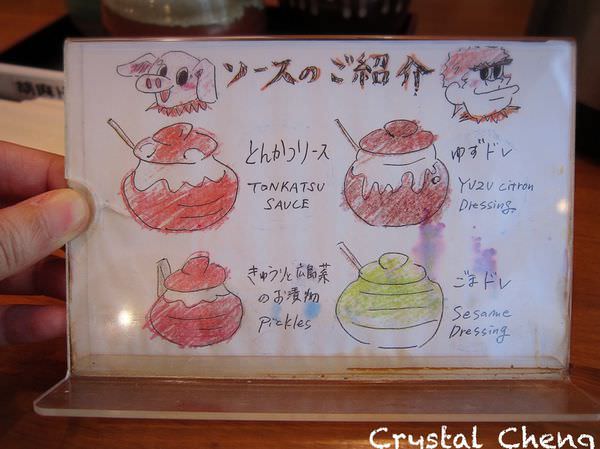 ソースのご紹介
とんかつソース
TONKATSU
SAUCE
ゆずドレ
YUZU citron
Dressing
きゅうりと広島菜
のお漬物
Pickles
ごまドレ
Sesame
Dressing
Crystal Cheng